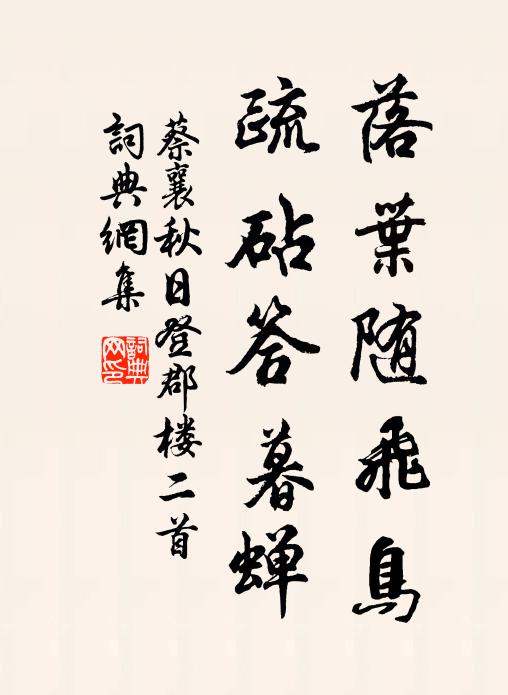 落葉随飛鳥
疏砧答暮蟬
蔡襄秋日登郡楼二首
詞典網集
詞典网印